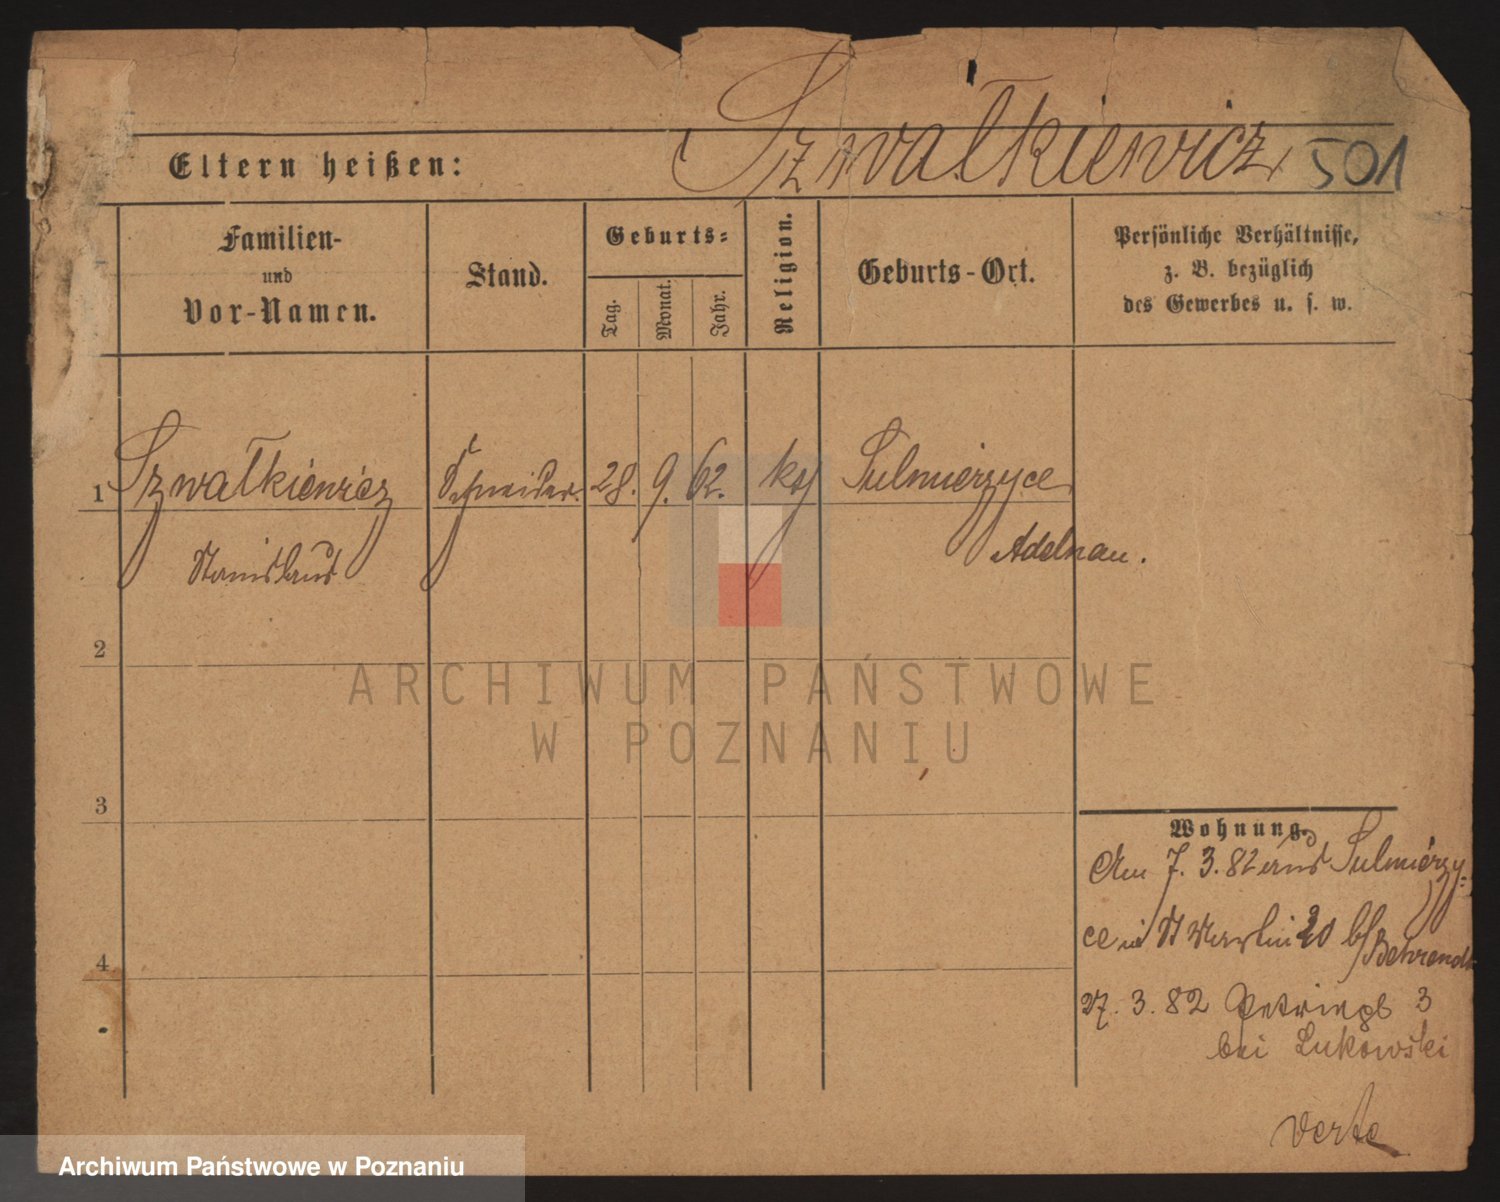 Szwałkiewicz 501
Eltern heißen:
Familien-
und
Vor-Namen.
Stand.
Geburts-
Tag.
Monat.
Jahr.
Religion.
Geburts-Ort.
Persönliche Verhältnisse,
z. B. bezüglich
des Gewerbes u. s. w.
1 Szwałkiewicz Schneider. 28. 9. 62. kath Sulmierzyce
Stanislaus Adelnau.
2
3
4
Wohnung.
Am 7. 3. 82 aus Sulmierzy-
ce in St Martin 20 b/ Behrendt
27. 3. 82 Petripl 3
bei Lukowski
verte
ARCHIWUM PAŃSTWOWE
W POZNANIU
Archiwum Państwowe w Poznaniu